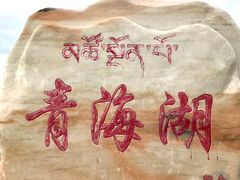 མཚོ་སྔོན་པོ།
青海湖